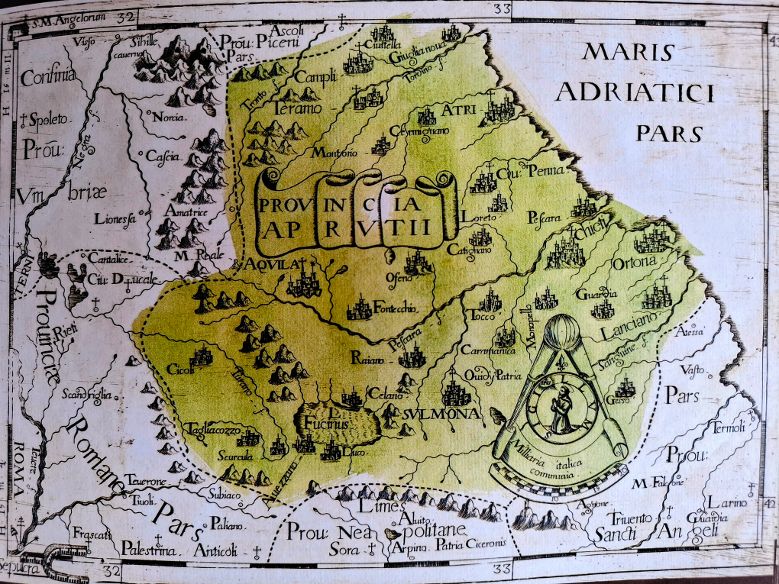 S. M. Angelorum
32
33
Visso
Sibille
cauerna
Prou: Piceni
Pars
Ascoli
Ciuitella
Giulia noua
MARIS
ADRIATICI
PARS
Campli
Tronto
Teramo
Torsino f.
ATRI
Montorio
Norcia
Cascia
Spoleto
Prou:
Vmbriæ
Negra
Lionessa
Amatrice
M. Reale
PROVINCIA
APRVTII
Ciu: Penna
Loreto
Pescara
Chieti
Catignano
Ortona
AQVILA
Ofena
Fontecchio
Cantalice
Ciu: Ducale
TERNI
Rieti
Prouinciæ
Tocco
Guardia
Lanciano
Caramanica
Raiano
Pescara
Sanguine f.
Atessa
Vasto
Cicoli
Celano
Ouidij Patria
SVLMONA
Gisso
Pars
Scandriglia
L.
Fucinus
Tagliacozzo
Scurcula
Luco
SIGILLVM
Milliaria italica
communia
Termoli
Prou:
ROMA
Teuere
Romane
Pars
Teuerone
Tiuoli
Subiaco
Paliano
Frascati
Palestrina
Anticoli
Lime
Prou: Nea
politane
Aluito
Sora
Arpino
Patria Ciceronis
Triuento
Sancti Angeli
Larino
Guardia
32
33